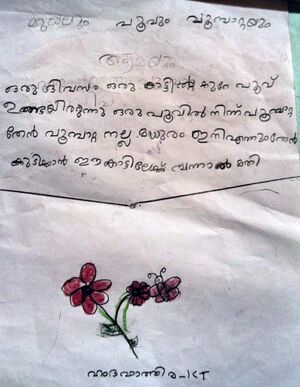 പൂവും പൂമ്പാറ്റയും
ആമയും
ഒരു ദിവസം ഒരു കാട്ടിൽ കുറേ പൂവ്
ഉണ്ടായിരുന്നു ഒരു പൂവിൽ നിന്ന് പൂമ്പാറ്റ
തേൻ പൂമ്പാറ്റ നല്ല മധുരം ഇനി എന്നും തേൻ
കുടിക്കാൻ ഈ കാട്ടിലേക്ക് വന്നാൽ മതി